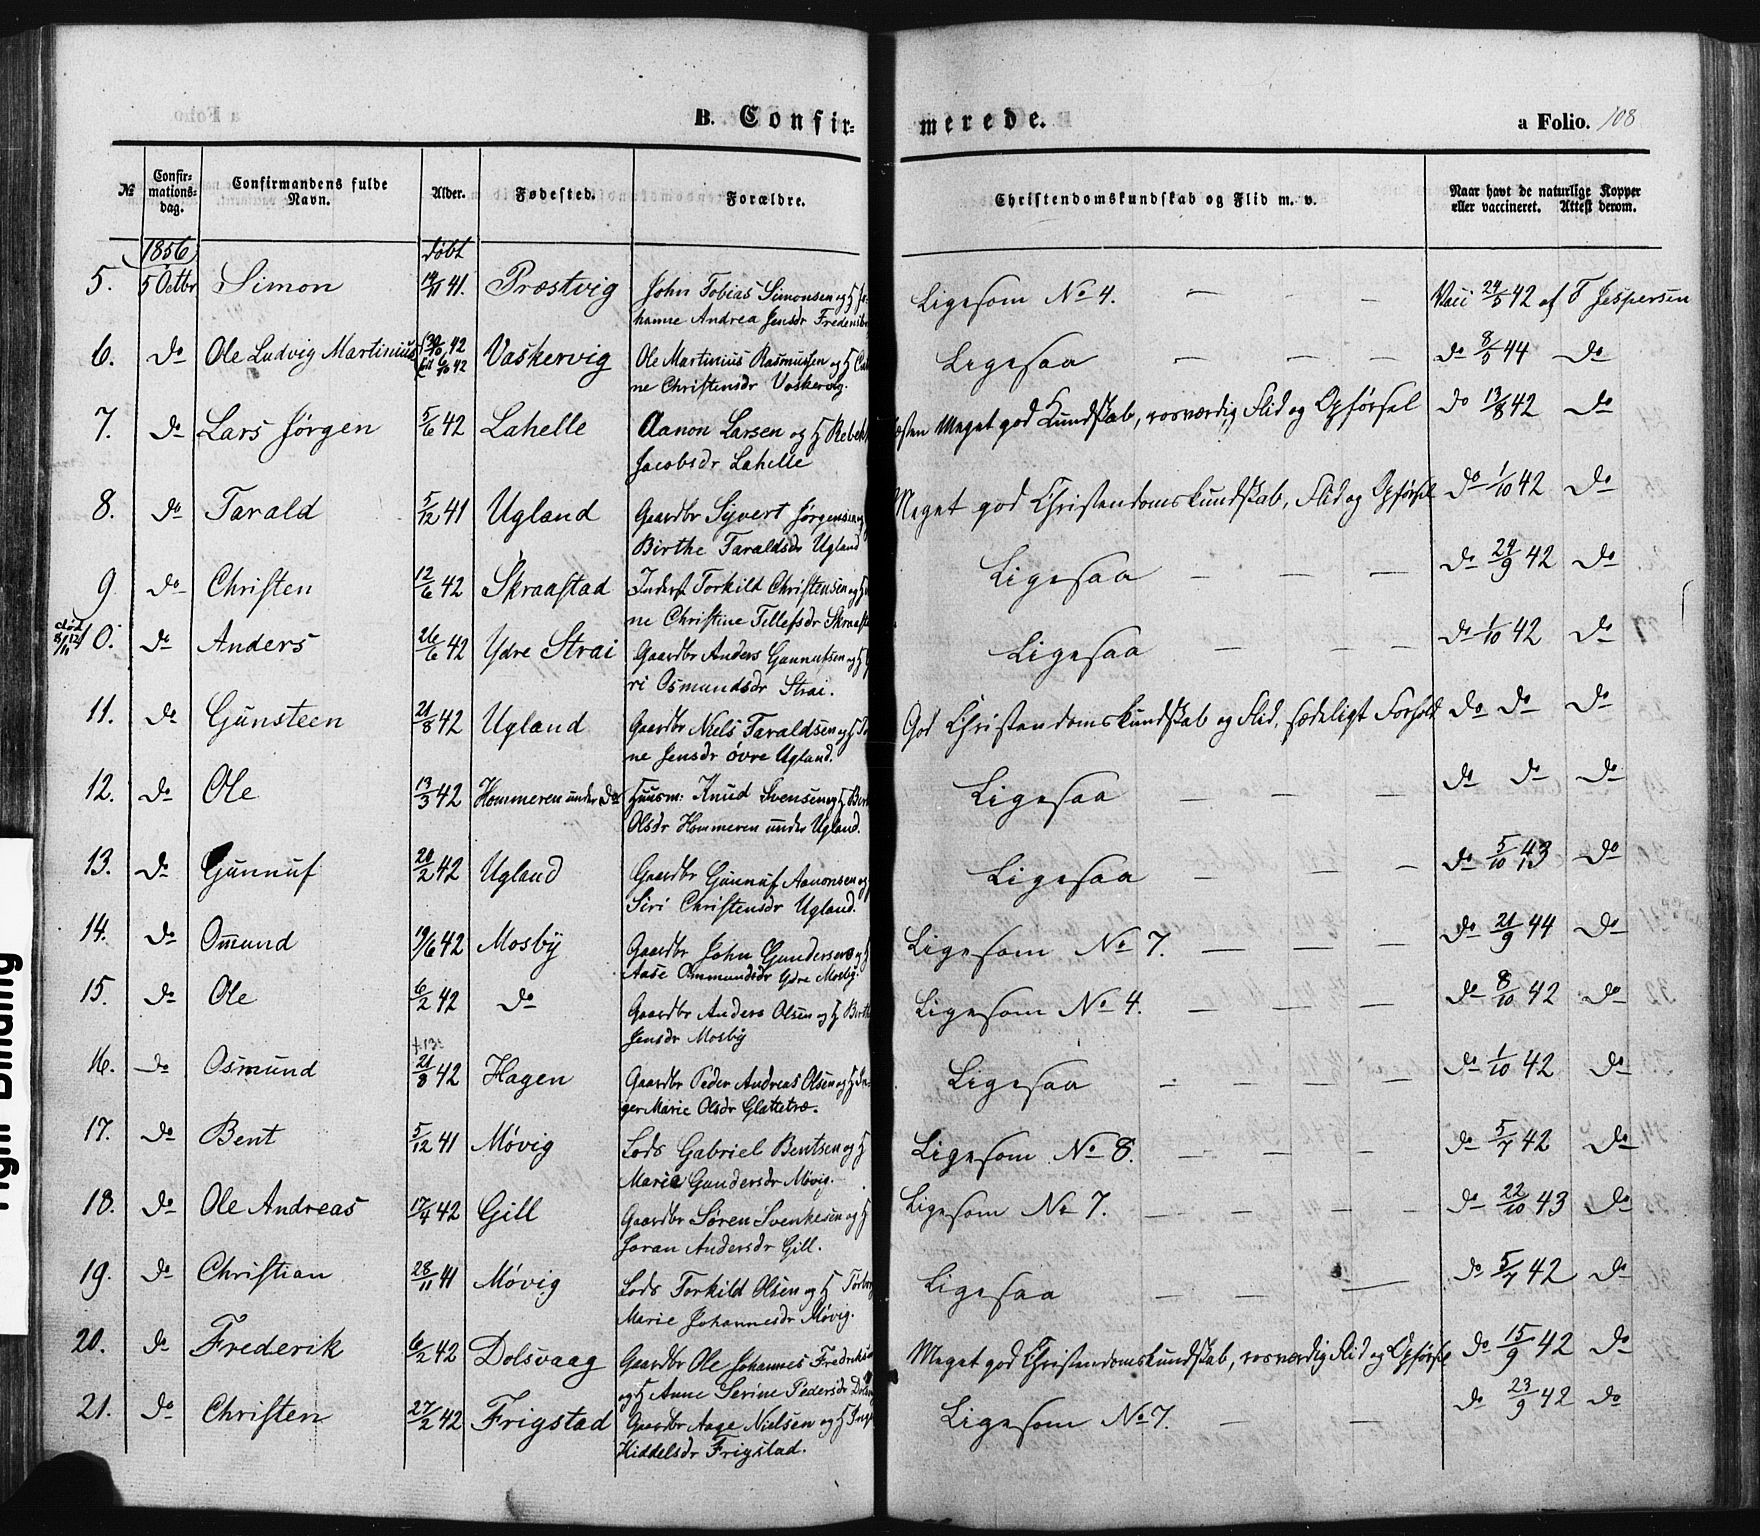 B. Confir- merede. a Folio. 108
№ Confir-mations-dag. Confirmandens fulde Navn. Alder. Fødested. Forældre. Christendomskundskab og Flid m. v. Naar havt de naturlige Kopper eller vaccineret. Attest derom.
1856 døbt
5. 5 Octbr Simon 41. Præstvig John Tobias Simonsen og H Jo- Ligesom No 4. — — — Vacc 24/5 42 af T Jespersen
hanne Andrea Jensdr
6. Do Ole Ludvig Martinius 42 Vaskervig Ole Martinius Rasmussen og H Ligesaa — — — Do 8/5 44 Do
42 ne Christensdr Vaskervig.
7. Do Lars Jørgen 5/6 42 Lahelle Aanon Larsen og H Meget god Kundskab, rosværdig Flid og Opførsel Do 13/8 42 Do
Jacobsdr Lahelle
8. Do Tarald 5/12 41 Ugland Gaardbr Syvert Jørgensen Meget god Christendomskundskab, Flid og Opførsel Do 1/10 42 Do
Birthe Taraldsdr Ugland
9 Do Christen 12/6 42 Skraastad Inderst Torkild Christensen og H Ligesaa — — — Do 29/9 42 Do
ne Christine Tellefsdr
død
10. Do Anders 26/6 42 Ydre Strai Gaardbr Anders Gunnufsen og H Ligesaa — — — Do 1/10 42 Do
ri Osmundsdr Strai.
11. Do Gunsteen 21/8 42 Ugland Gaardbr Niels Taraldsen og H God Christendomskundskab og Flid, sædeligt Forhold Do Do Do
ne Jensdr øvre Ugland.
12. Do Ole 13/3 42 Hommeren under Do Huusm: Knud Svensen og H Ligesaa — — — Do Do Do
Olsdr Hommeren under Ugland.
13. Do Gunnuf 20/2 42 Ugland Gaardbr Gunnuf Aanonsen og Ligesaa — — — Do 5/10 43 Do
Siri Christensdr Ugland.
14. Do Omund 19/6 42 Mosby Gaardbr John Gundersen og H Ligesom No 7. — — — Do 21/9 44 Do
Aase Ommundsdr Ydre Mosby.
15. Do Ole 6/2 42 Do Gaardbr Anders Olsen og H Birthe Ligesom No 4. — — — Do 8/10 42 Do
Jensdr Mosby
16. Do Osmund 21/8 42 Hagen Gaardbr Peder Andreas Olsen og H In- Ligesaa — — — Do 1/10 42 Do
ger Marie Olsdr Glattetræ.
17. Do Bent 5/12 41 Møvig Lods Gabriel Bentsen og H Ligesom No 8. — — — Do 5/7 42 Do
Marie Gundersdr Møvig.
18. Do Ole Andreas 17/4 42 Gill Gaardbr Søren Svenkesen og H Ligesom No 7. — — — — Do 22/10 43 Do
Joran Andersdr Gill.
19. Do Christian 28/11 41 Møvig Lods Torkild Olsen og H Ligesaa — — — Do 5/7 42 Do
Marie Johannesdr Møvig.
20. Do Frederik 6/2 42 Dolsvaag Gaardbr Ole Johannes Meget god Christendomskundskab, rosværdig Flid og Opførsel Do 15/9 42 Do
og H Anne Serine Pedersdr
21. Do Christen 27/2 42 Frigstad Gaardbr Aage Nielsen og H Ligesom No 7. — — Do 23/9 42 Do
Kiddelsdr Frigstad.